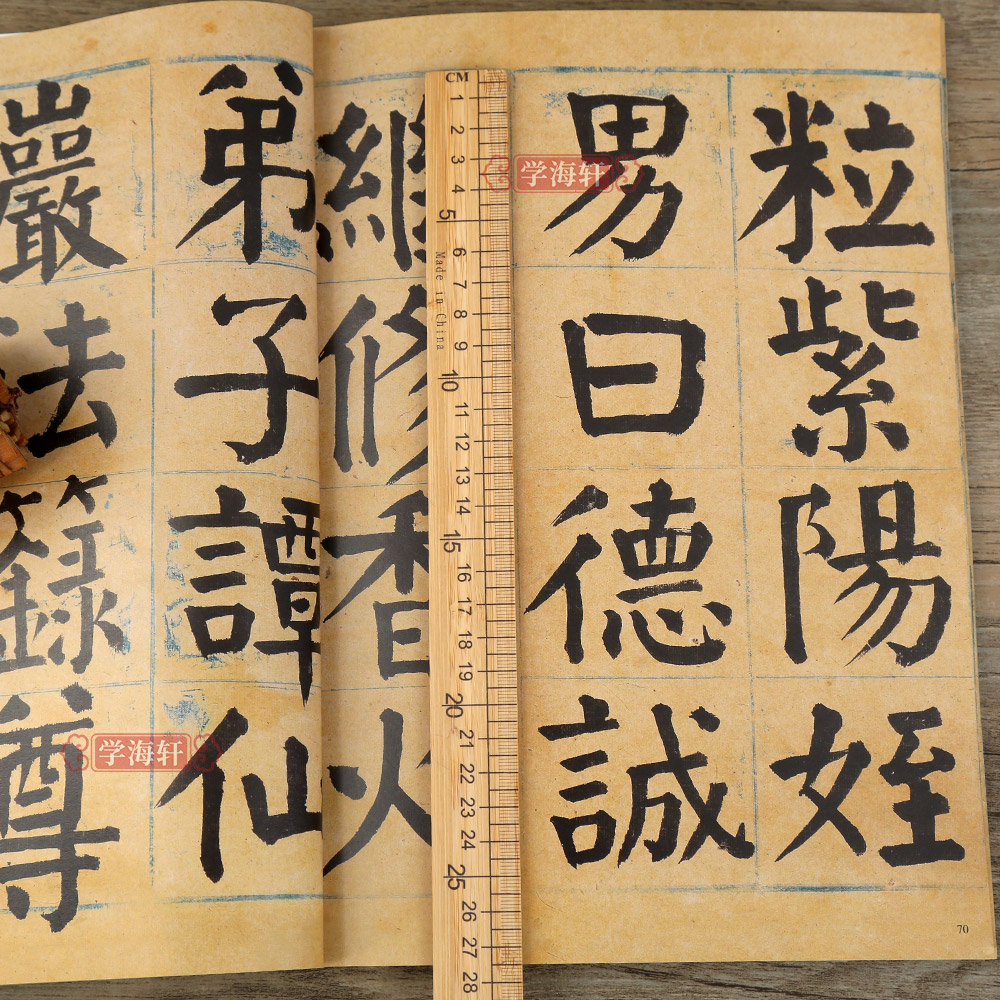 粒紫陽姪
男曰德誠
維修香火
弟子譚仙
巖法籙尊
70
CM
1
2
3
4
5
6
7
8
9
10
11
12
13
14
15
16
17
18
19
20
21
22
23
24
25
26
27
28
Made in China
学海轩
学海轩